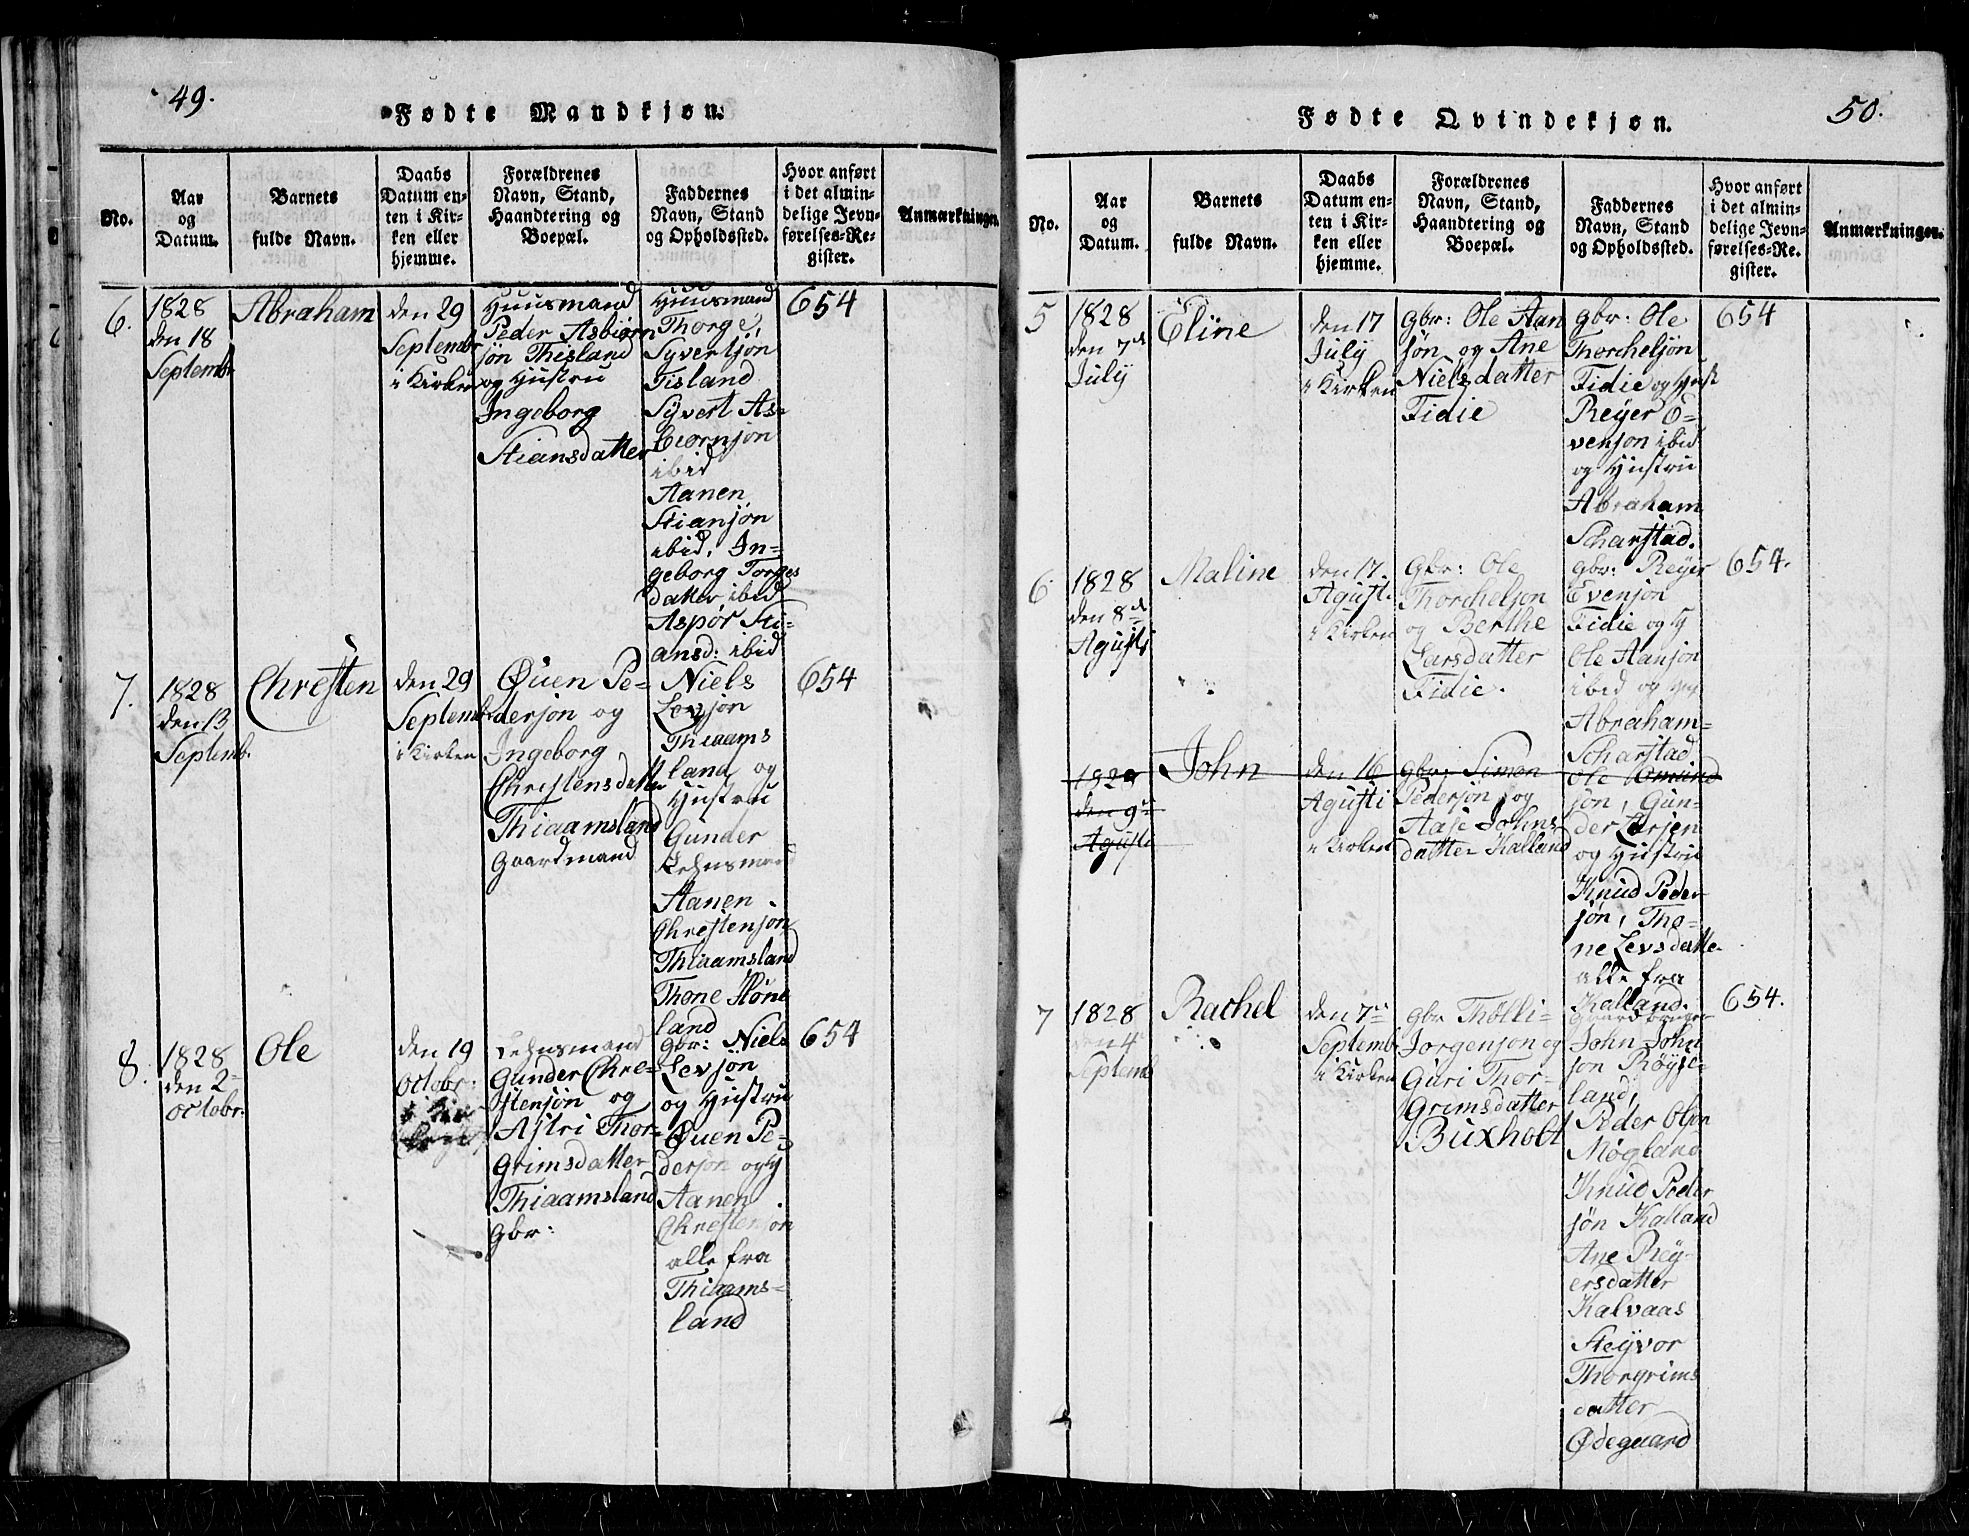 49.
Fødte Mandkjøn.
No.
Aar
og
Datum.
Barnets
fulde Navn.
Daabs
Datum en-
ten i Kir-
ken eller
hjemme.
Forældrenes
Navn, Stand,
Haandtering og
Boepæl.
Faddernes
Navn, Stand
og Opholdssted.
Hvor anført
i det almin-
delige Jevn-
førelses-Re-
gister.
Anmærkninger.
6.
1828
den 18
Septembr
Abraham
den 29
Septembr
i Kirken
Huusmand
Peder Asbiørn
søn Thisland
og Hustru
Ingeborg
Stiansdatter
Huusmand
Thorge
Syvertsøn
Tisland
Syvert As-
beornsøn
ibid
Aanen
Stiansøn
ibid, In-
geborg Torges
datter ibid
Aspør Sti-
ansd: ibid
654
7.
1828
den 13
Septemb.
Chresten
den 29
Septemb
i Kirken
Øuen Pe-
dersøn og
Ingeborg
Chrestensdatter
Thiaamsland
Gaardmand
Niels
Levsøn
Thiaams
land og
Hustru
Gunder
Lehnsmand
Aanen
Chrestensøn
Thiaamsland
Thone Høne
land
654
8.
1828
den 2
Octobr.
Ole
den 19
Octobr:
i Kir
Lehnsmand
Gunder Chre-
stensøn og
Astri Thor-
Grimsdatter
Thiaamsland
Gbr:
gbr: Niels
Levsøn
og Hustru
Øuen Pe-
dersøn og
Aanen
Chrestensøn
alle fra
Thiaams-
land
654
50.
Fødte Qvindekjøn.
No.
Aar
og
Datum.
Barnets
fulde Navn.
Daabs
Datum en-
ten i Kir-
ken eller
hjemme.
Forældrenes
Navn, Stand,
Haandtering og
Boepæl.
Faddernes
Navn, Stand
og Opholdssted.
Hvor anført
i det almin-
delige Jevn-
førelses-Re-
gister.
Anmærkninger.
5
1828
den 7de
July
Eline
den 17
July
i Kirken
Gbr: Ole Aan
søn og Ane
Nielsdatter
Fidie
gbr: Ole
Thorchelsøn
Fidie og Hust
Reyer E-
vensøn ibid
og Hustru
Abraham
Scharstad.
654
6
1828
den 8de
Agusti
Maline
den 17.
Agusti
i Kirken
Gbr: Ole
Thorchelsøn
og Berthe
Larsdatter
Fidie.
gbr: Reyer
Evensøn
Fidie og
Ole Aansøn
ibid og
Abraham
Scharstad
654.
1828
den 9de
Agusti
John
den 16
Agusti
i Kirken
gbr: Simon
Pedersøn og
Aase Johns
datter Kalland
Ole Amund
søn, Gun-
der Larsen
og Hustru
Knud Peder
søn, Tho-
ne Levsdatte
alle fra
Kalland.
7
1828
den 4
Septemb
Rachel
den 7de
Septemb
i Kirken
gbr Tholli-
Jorgensøn og
Guri Thor-
Grimsdatter
Buxholt
Gaardbruger
John John
søn Røyse-
land,
Peder Olsøn
Møgland
Knud Peder
søn Kalland
Ane Rey-
ersdatter
Kalvaas
Steyvor
Thorgrims
datter
Ødegaard
654.